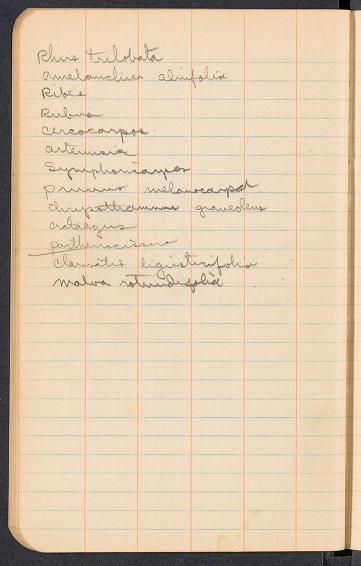 Rhus trilobata
amelanchier alnifolia
Ribes
Rubus
cercocarpos
artemisia
Symphoricarpos
prunus melanocarpa
chrysothamnus graveolens
crataegus
parthenocissus
clematis ligusticifolia
malva rotundifolia